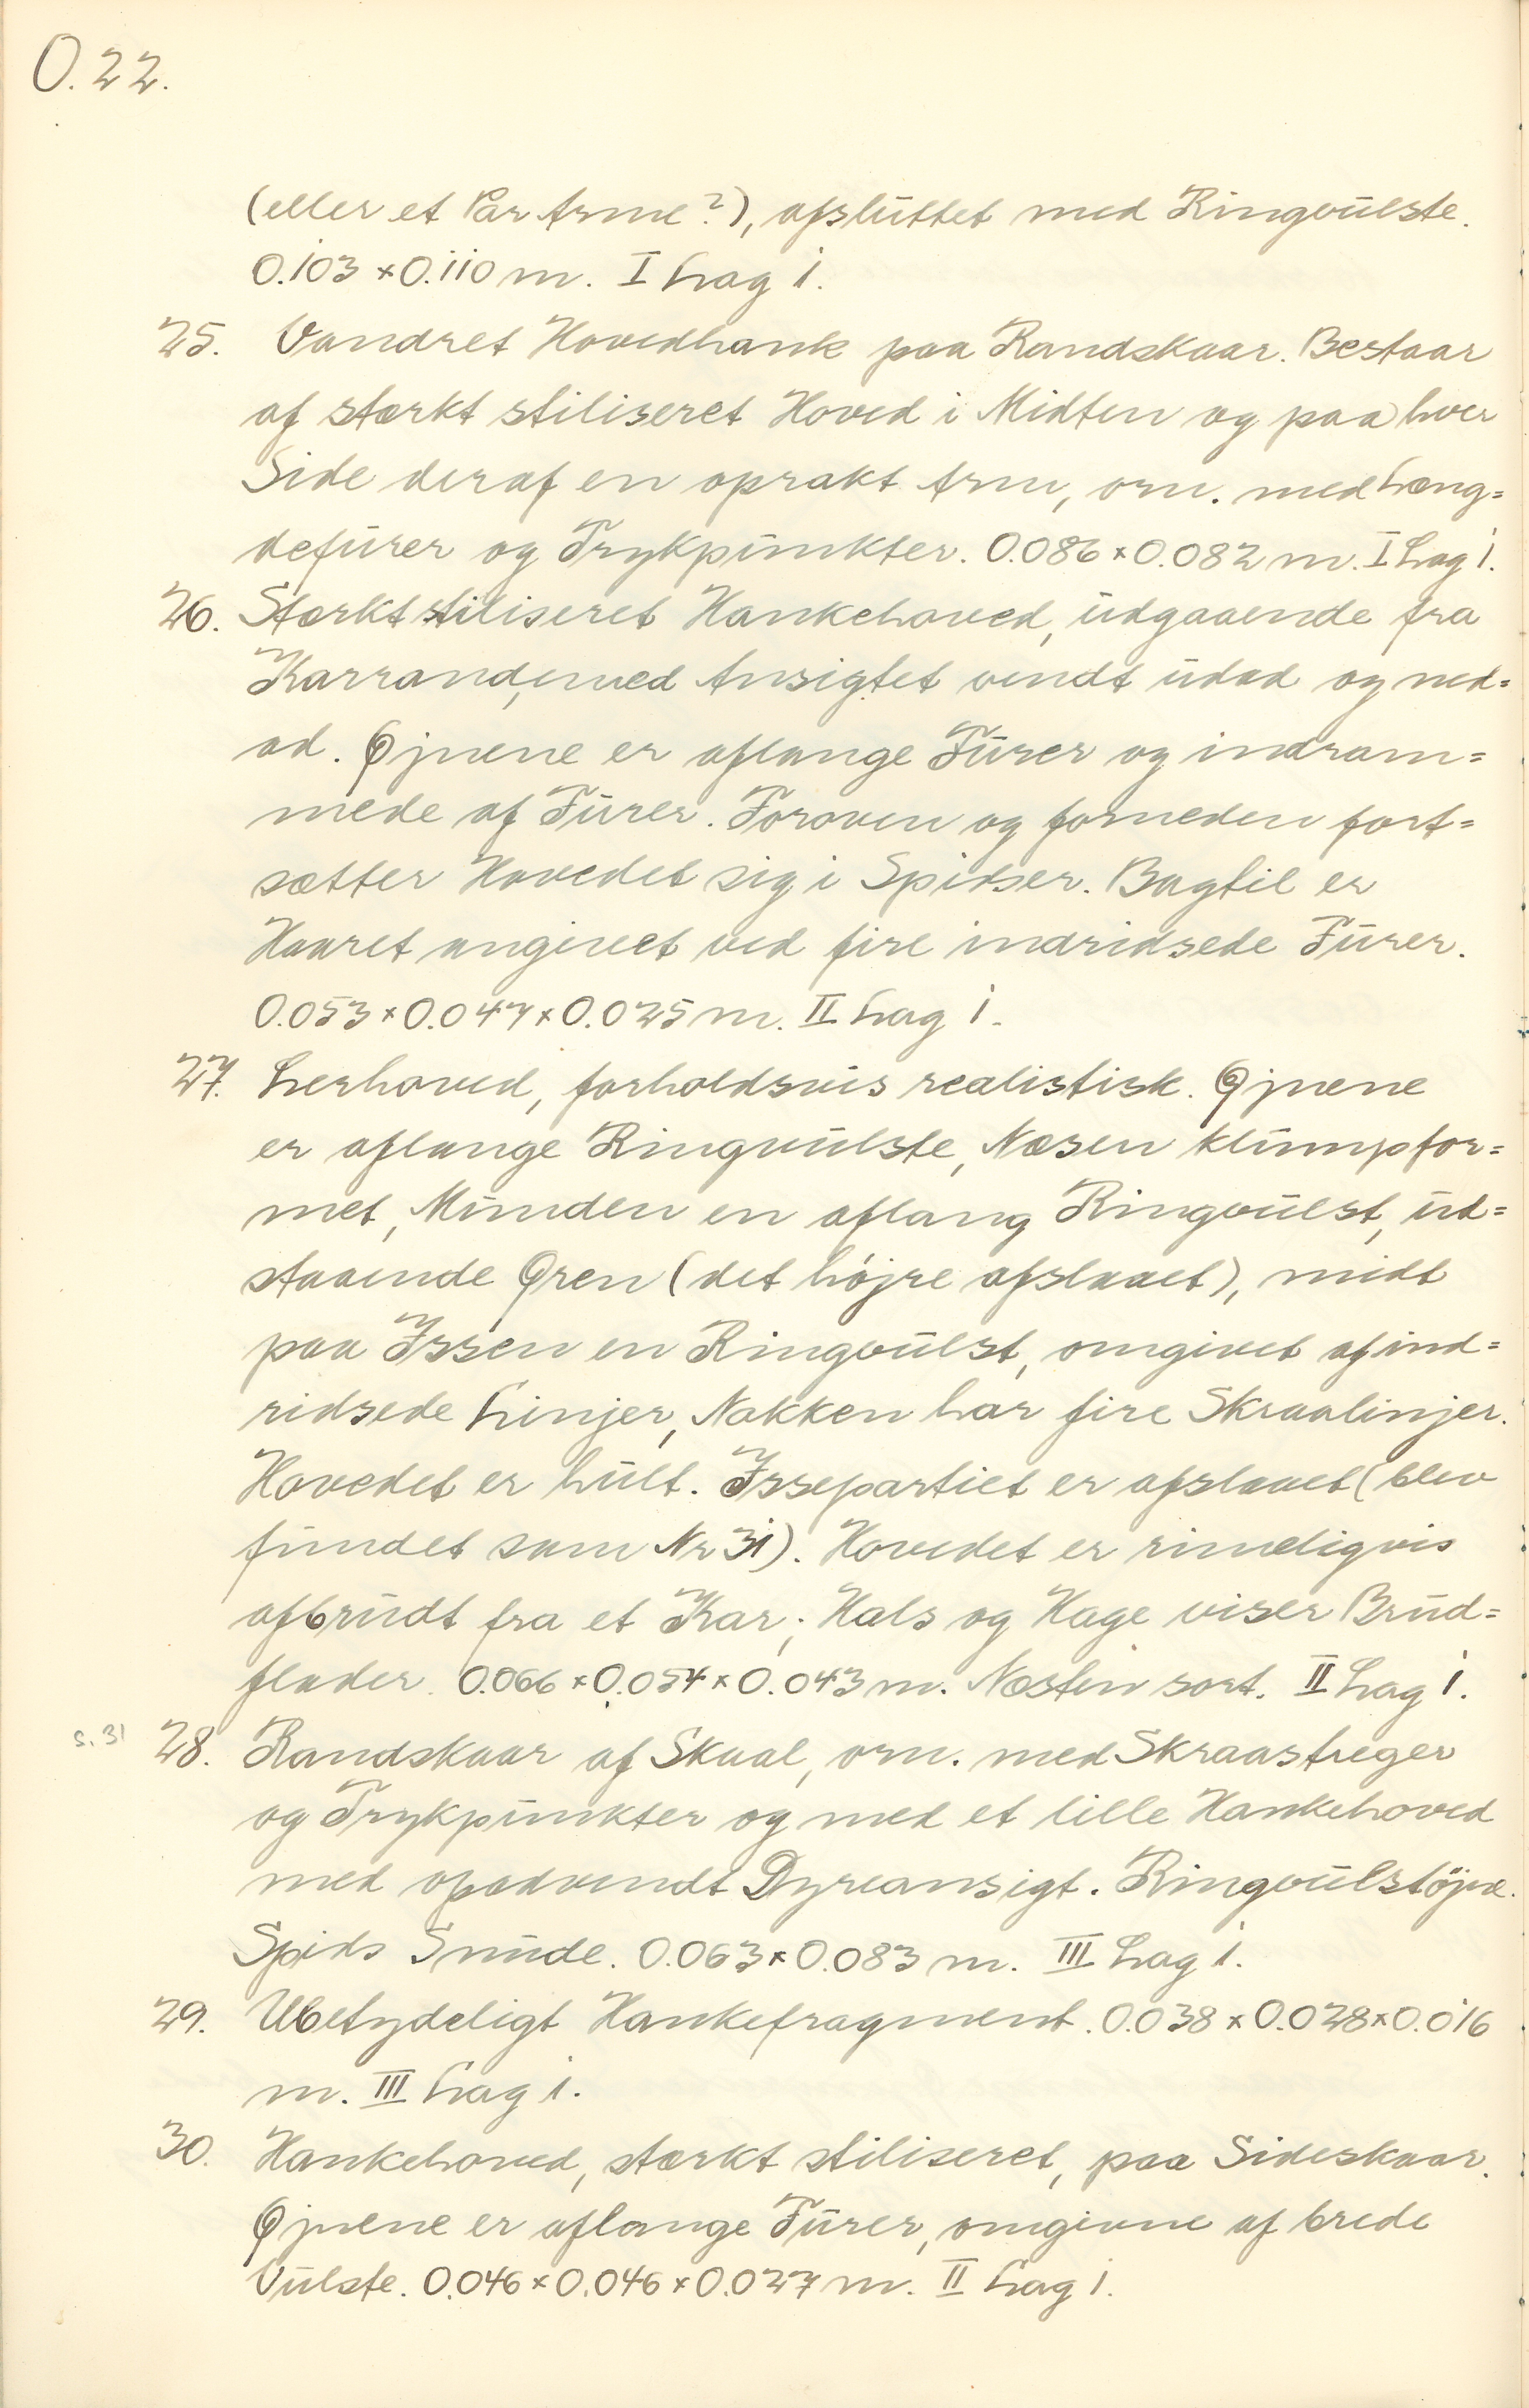 O.22.
(eller et Par Arme?), afsluttet med Ringvulste.
0.103 × 0.110 m. I Lag 1.
25. Vandret Hovedhank paa Randskaar. Bestaar
af stærkt stiliseret Hoved i Midten og paa hver
Side deraf en oprakt Arm, orn. med Læng=
defurer og Trykpunkter. 0.086 × 0.082 m. I Lag 1.
26. Stærkt stiliseret Hankehoved, udgaaende fra
Karrand, med Ansigtet vendt udad og ned=
ad. Øjnene er aflange Furer og indram=
mede af Furer. Foroven og forneden fort=
sætter Hovedet sig i Spidser. Bagtil er
Haaret angivet ved fire indridsede Furer.
0.053 × 0.047 × 0.025 m. II Lag 1.
27. Lerhoved, forholdsvis realistisk. Øjnene
er aflange Ringvulste, Næsen klumpfor=
met, Munden en aflang Ringvulst, ud=
staaende Øren (det højre afslaaet), midt
paa Issen en Ringvulst, omgivet af ind=
ridsede Linjer, Nakken har fire Skraalinjer.
Hovedet er hult. Issepartiet er afslaaet (blev
fundet som Nr 31). Hovedet er rimeligvis
afbrudt fra et Kar; Hals og Hage viser Brud=
flader. 0.066 × 0.054 × 0.043 m. Næsten sort. II Lag 1.
s. 31 28. Randskaar af Skaal, orn. med Skraastreger
og Trykpunkter og med et lille Hankehoved
med opadvendt Dyreansigt. Ringvulstöjne.
Spids Snude. 0.063 × 0.083 m. III Lag 1.
29. Ubetydeligt Hankefragment. 0.038 × 0.028 × 0.016
m. III Lag 1.
30. Hankehoved, stærkt stiliseret, paa Sideskaar.
Øjnene er aflange Furer, omgivne af brede
Vulste. 0.046 × 0.046 × 0.027 m. II Lag 1.